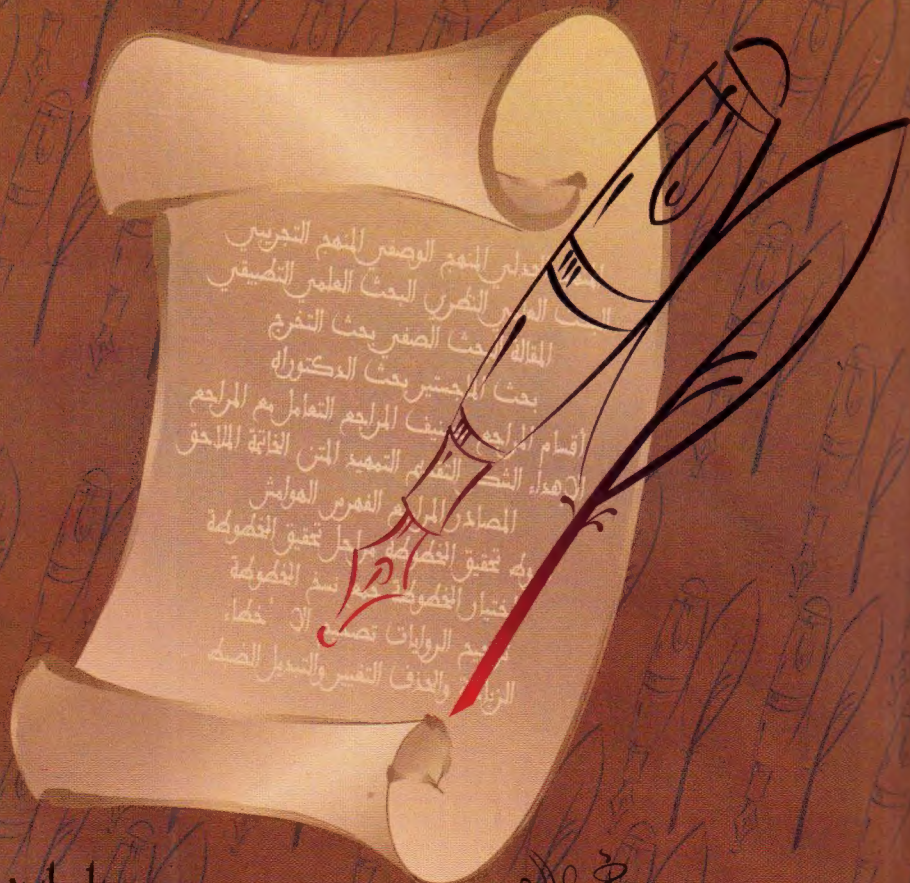 الجدلي المنهج الوصفي المنهج التجريبي
البحث النظري البحث العلمي التطبيقي
المقالة البحث الصفي بحث التخرج
بحث الماجستير بحث الدكتوراه
أقسام المراجع تصنيف المراجع التعامل مع المراجع
الاهداء الشكر التقديم التمهيد المتن الخاتمة الملاحق
المصادر المراجع الفهرس الهوامش
تحقيق المخطوطة مراحل تحقيق المخطوطة
اختيار المخطوطة نسخ المخطوطة
الروايات الاخطاء
الزيادة والحذف التفسير والتسديل الضبط